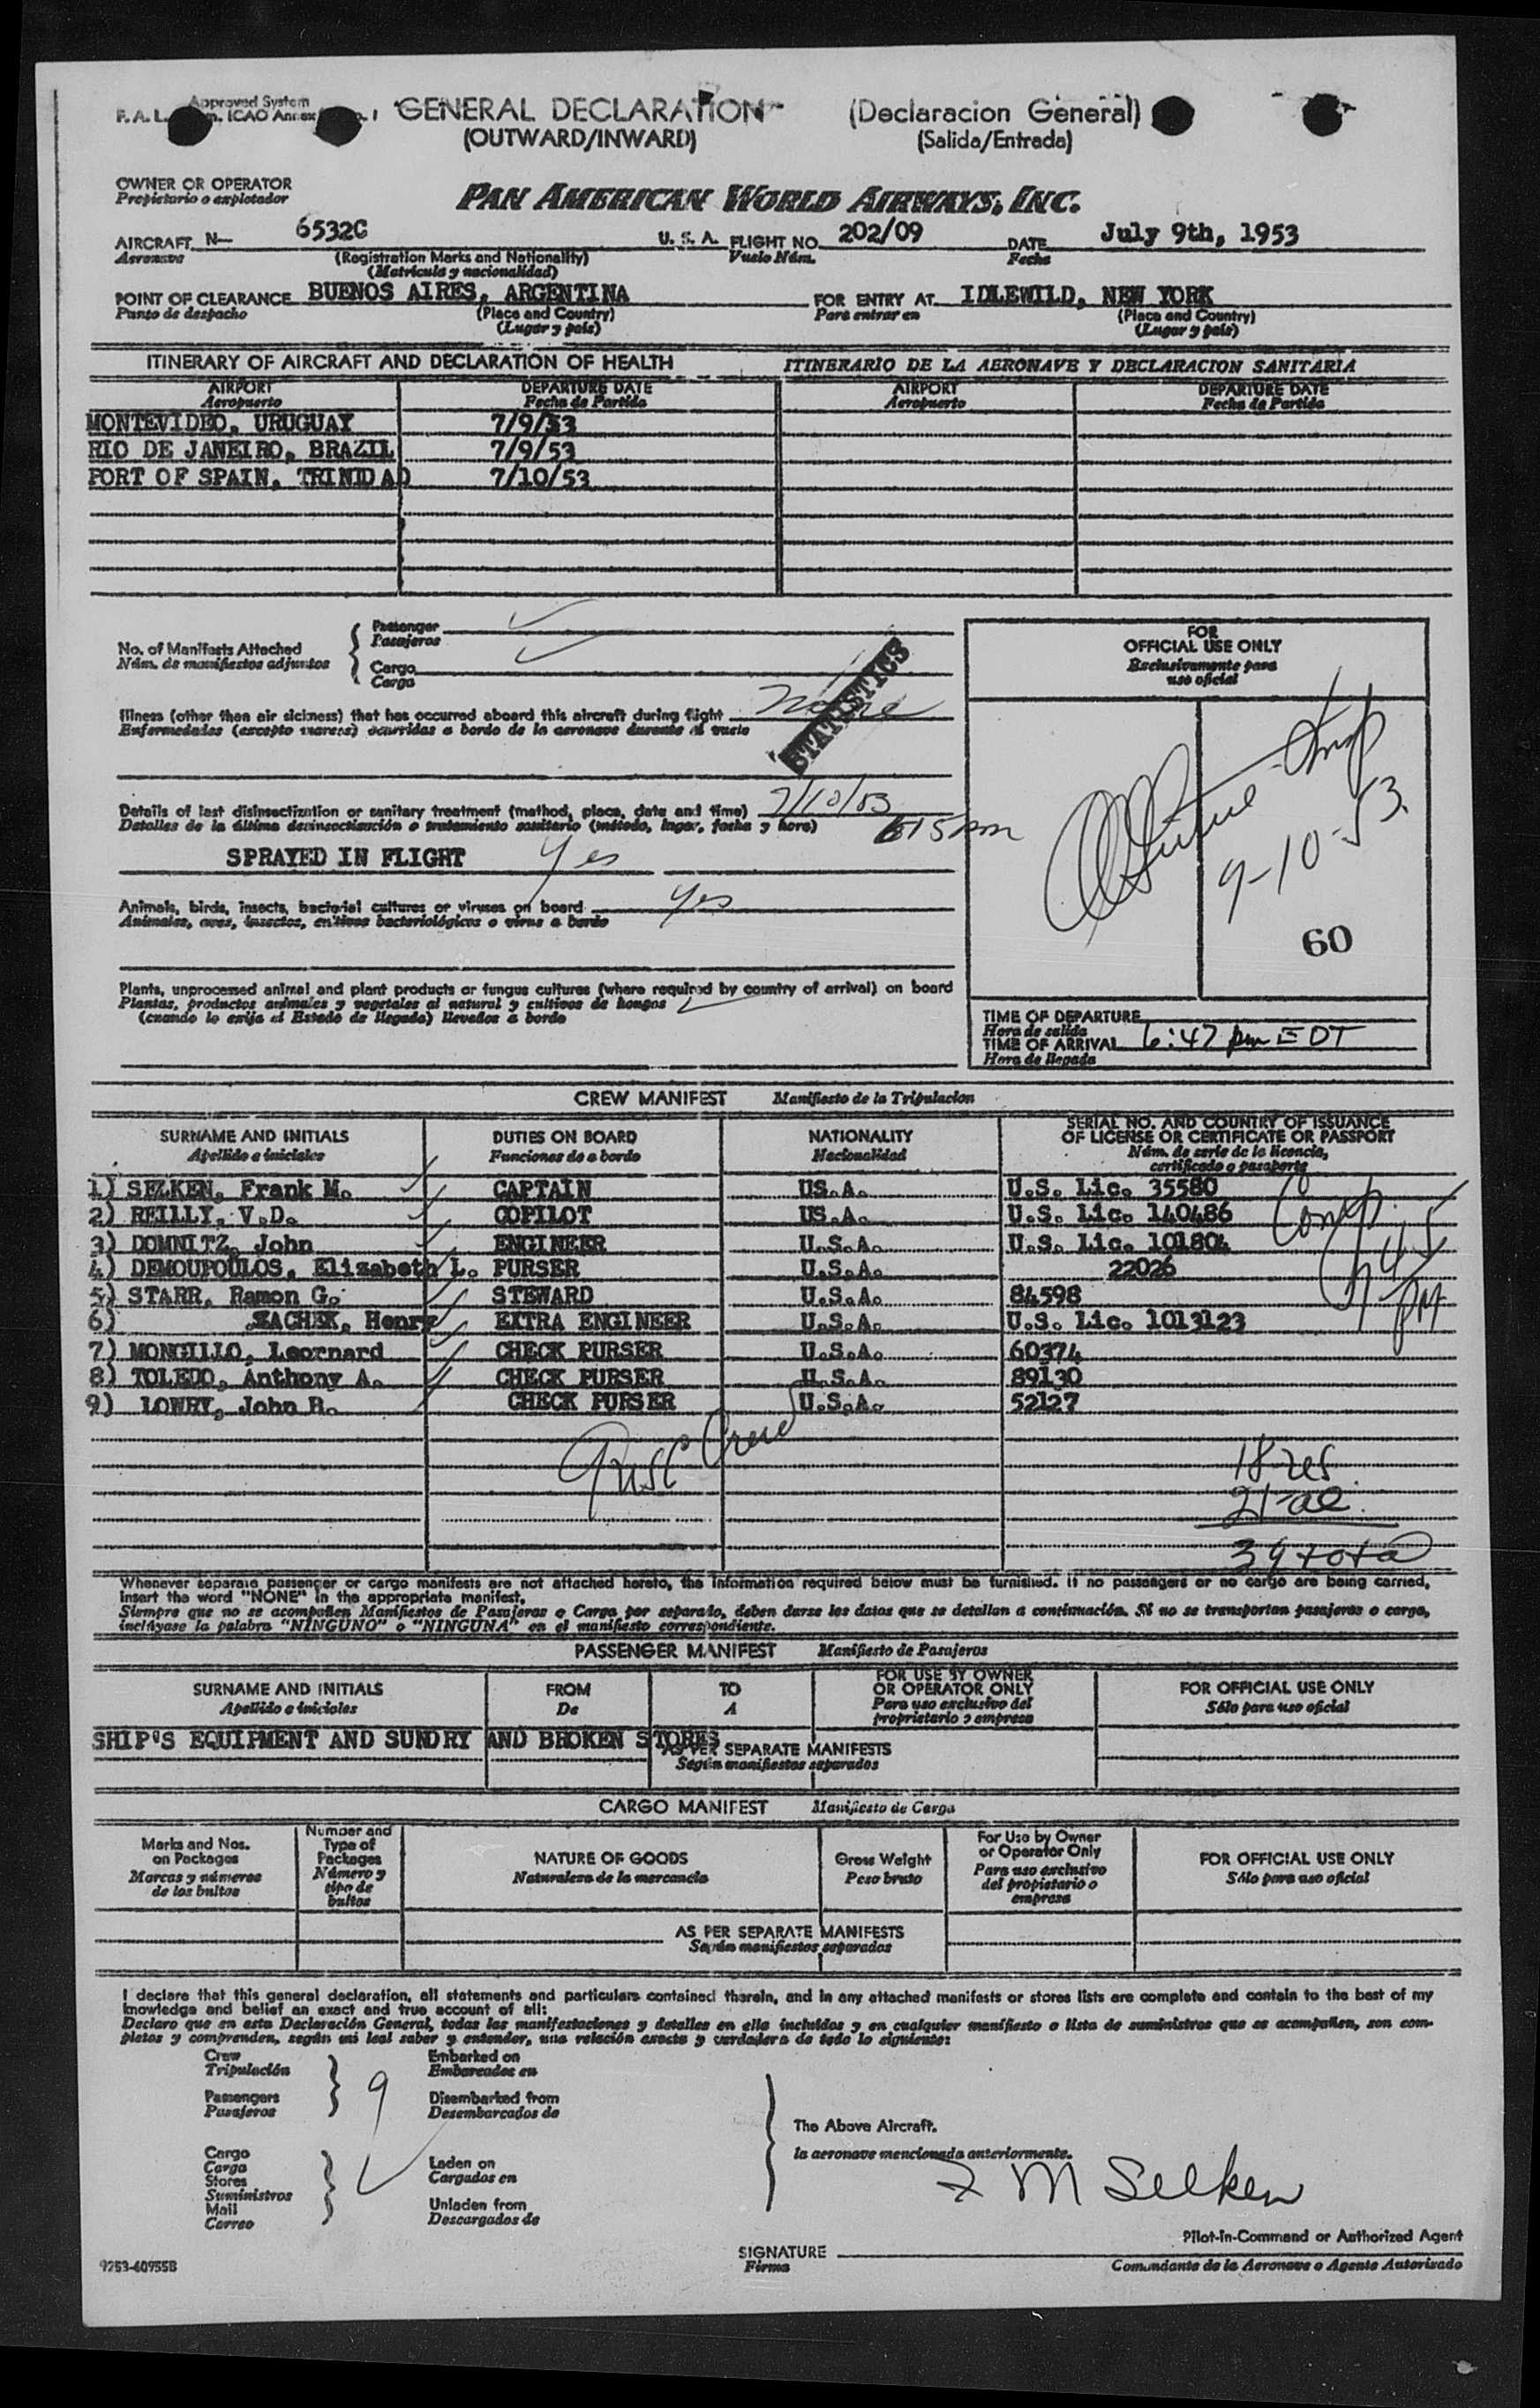 Approved System
F. A. L. ICAO Annex
GENERAL DECLARATION (Declaracion General)
(OUTWARD/INWARD) (Salida/Entrada)
OWNER OR OPERATOR
Propietario o explotador
PAN AMERICAN WORLD AIRWAYS, INC.
AIRCRAFT N— 6532C U. S. A. FLIGHT NO. 202/09 DATE July 9th, 1953
Aeronave (Registration Marks and Nationality) Vuelo Núm. Fecha
(Matrícula y nacionalidad)
POINT OF CLEARANCE BUENOS AIRES, ARGENTINA FOR ENTRY AT IDLEWILD, NEW YORK
Punto de despacho (Place and Country) Para entrar en (Place and Country)
(Lugar y país) (Lugar y país)
ITINERARY OF AIRCRAFT AND DECLARATION OF HEALTH ITINERARIO DE LA AERONAVE Y DECLARACION SANITARIA
AIRPORT DEPARTURE DATE AIRPORT DEPARTURE DATE
Aeropuerto Fecha de Partida Aeropuerto Fecha de Partida
MONTEVIDEO, URUGUAY 7/9/53
RIO DE JANEIRO, BRAZIL 7/9/53
PORT OF SPAIN, TRINIDAD 7/10/53
No. of Manifests Attached
Núm. de manifiestos adjuntos
Passenger
Pasajeros
Cargo
Carga
FOR
OFFICIAL USE ONLY
Exclusivamente para
uso oficial
STATISTICS
Illness (other than air sickness) that has occurred aboard this aircraft during flight None
Enfermedades (excepto mareos) ocurridas a bordo de la aeronave durante el vuelo
Details of last disinsectization or sanitary treatment (method, place, date and time) 7/10/53
Detalles de la última desinsectización o tratamiento sanitario (método, lugar, fecha y hora) 615 pm
SPRAYED IN FLIGHT Yes
9-10-53
60
Animals, birds, insects, bacterial cultures or viruses on board Yes
Animales, aves, insectos, cultivos bacteriológicos o virus a bordo
Plants, unprocessed animal and plant products or fungus cultures (where required by country of arrival) on board
Plantas, productos animales y vegetales al natural y cultivos de hongos
(cuando lo exija el Estado de llegada) llevados a bordo
TIME OF DEPARTURE
Hora de salida
TIME OF ARRIVAL 6:47 pm EDT
Hora de llegada
CREW MANIFEST Manifiesto de la Tripulacion
SURNAME AND INITIALS DUTIES ON BOARD NATIONALITY SERIAL NO. AND COUNTRY OF ISSUANCE
OF LICENSE OR CERTIFICATE OR PASSPORT
Apellido e iniciales Funciones de a bordo Nacionalidad Núm. de serie de la licencia,
certificado o pasaporte
1) SELKEN, Frank M. CAPTAIN US.A. U.S. Lic. 35580
2) REILLY, V.D. COPILOT US.A. U.S. Lic. 140486
3) DOMNITZ, John ENGINEER U.S.A. U.S. Lic. 101804
4) DEMOUPOULOS, Elizabeth L. PURSER U.S.A. 22026
5) STARR, Ramon G. STEWARD U.S.A. 84598
6) ZACHEK, Henry EXTRA ENGINEER U.S.A. U.S. Lic. 1013123
7) MONGILLO, Leornard CHECK PURSER U.S.A. 60374
8) TOLEDO, Anthony A. CHECK PURSER U.S.A. 89130
9) LOWRY, John R. CHECK PURSER U.S.A. 52127
Comp
745
PM
Crew
18
21
39 total
Whenever separate passenger or cargo manifests are not attached hereto, the information required below must be furnished. If no passengers or no cargo are being carried,
insert the word "NONE" in the appropriate manifest.
Siempre que no se acompañen Manifiestos de Pasajeros o Carga por separado, deben darse los datos que se detallan a continuación. Si no se transportan pasajeros o carga,
inclúyase la palabra "NINGUNO" o "NINGUNA" en el manifiesto correspondiente.
PASSENGER MANIFEST Manifiesto de Pasajeros
SURNAME AND INITIALS FROM TO FOR USE BY OWNER OR OPERATOR ONLY FOR OFFICIAL USE ONLY
Apellido e iniciales De A Para uso exclusivo del propietario o empresa Sólo para uso oficial
SHIP'S EQUIPMENT AND SUNDRY AND BROKEN STORES
AS PER SEPARATE MANIFESTS
Según manifiestos separados
CARGO MANIFEST Manifiesto de Carga
Marks and Nos. on Packages Number and Type of Packages NATURE OF GOODS Gross Weight For Use by Owner or Operator Only FOR OFFICIAL USE ONLY
Marcas y números de los bultos Número y tipo de bultos Naturaleza de la mercancia Peso bruto Para uso exclusivo del propietario o empresa Sólo para uso oficial
AS PER SEPARATE MANIFESTS
Según manifiestos separados
I declare that this general declaration, all statements and particulars contained therein, and in any attached manifests or stores lists are complete and contain to the best of my
knowledge and belief an exact and true account of all:
Declaro que en esta Declaración General, todas las manifestaciones y detalles en ella incluidos y en cualquier manifiesto o lista de suministros que se acompañen, son com-
pletos y comprenden, según mi leal saber y entender, una relación exacta y verdadera de todo lo siguiente:
Crew Embarked on
Tripulación Embarcados en
9
Passengers Disembarked from
Pasajeros Desembarcados de
The Above Aircraft.
la aeronave mencionada anteriormente.
Cargo Laden on
Carga Cargados en
Stores
Suministros
Mail Unladen from
Correo Descargados de
F M Selken
Pilot-in-Command or Authorized Agent
SIGNATURE
Firma Comandante de la Aeronave o Agente Autorizado
9253-40955B